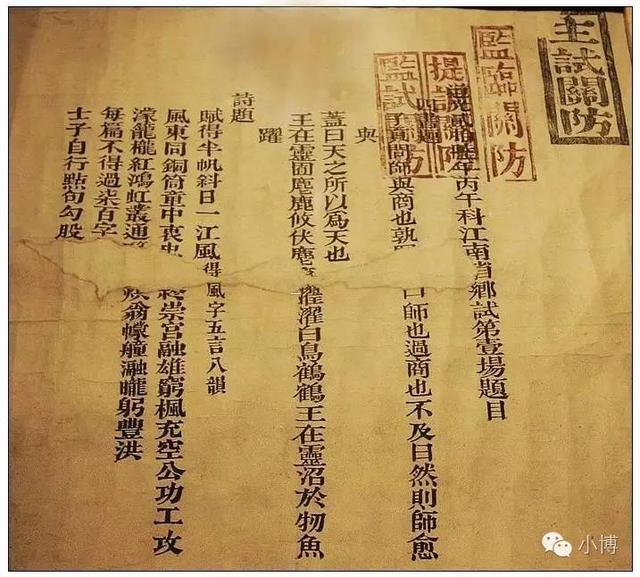 主試關防
監臨關防
提調關防
監試關防
道光貳拾陸年丙午科江南省鄉試第壹場題目
四書題
子貢問師與商也孰 曰師也過商也不及曰然則師愈
與
蓋曰天之所以為天也
王在靈囿麀鹿攸伏麀 濯濯白鳥鶴鶴王在靈沼於牣魚
躍
詩題
賦得半帆斜日一江風得風字五言八韻
風東同銅筒童中衷 終崇宮融雄窮楓充空公功工攻
濛龍櫳紅鴻虹叢通 翁幪艟瀜曨躬豐洪
每篇不得過柒百字
士子自行點句勾股
小博